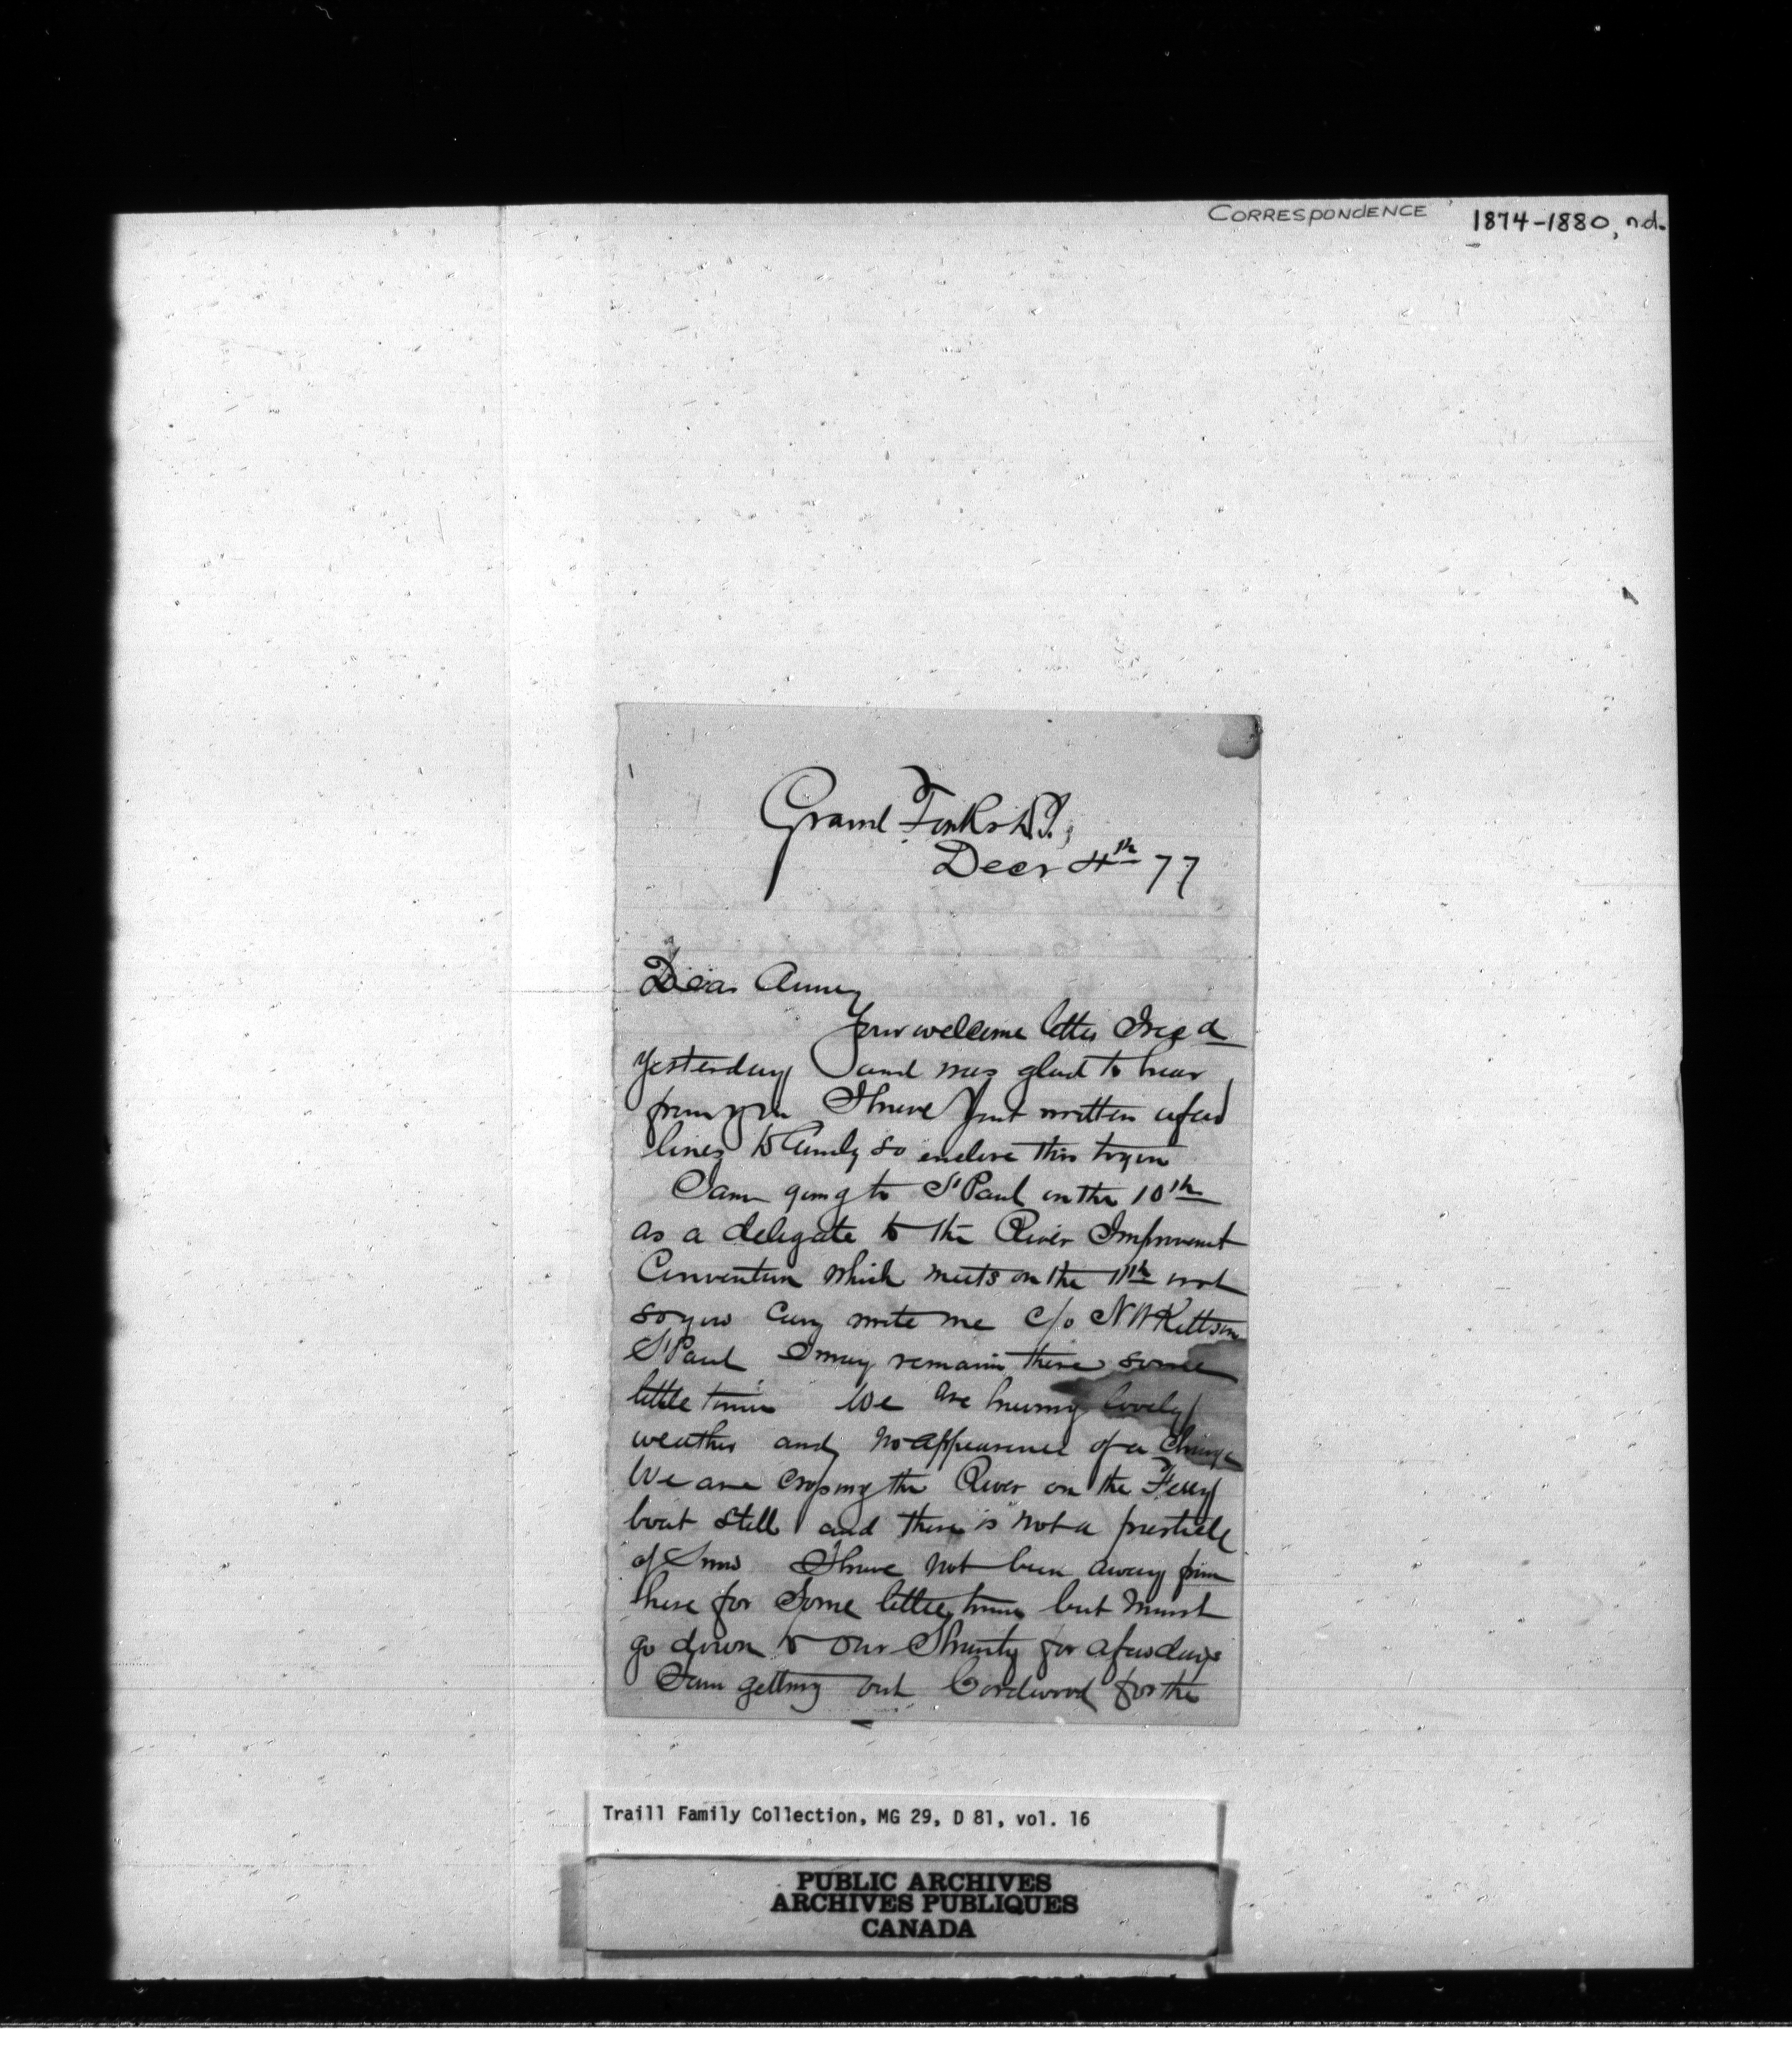 CORRESPONDENCE 1874-1880, n.d.
1
Grand Forks D.T.,
Decr 4th 77
Dear Anney
Your welcome letter I recd
yesterday and was glad to hear
from you I have just written a few
lines to so enclose this to you
I am going to St Paul on the 10th
as a delegate to the River Improvement
Convention which meets on the 11th inst
so you can write me c/o N W Kittson
St Paul I may remain there some
little time We are having lovely
weather and no appearence of a change
We are crossing the River on the Ferry
boat still and there is not a particle
of Snow I have not been away from
here for Some little time but must
go down to our Shanty for a few days
I am getting out Cordwood for the
Traill Family Collection, MG 29, D 81, vol. 16
PUBLIC ARCHIVES
ARCHIVES PUBLIQUES
CANADA